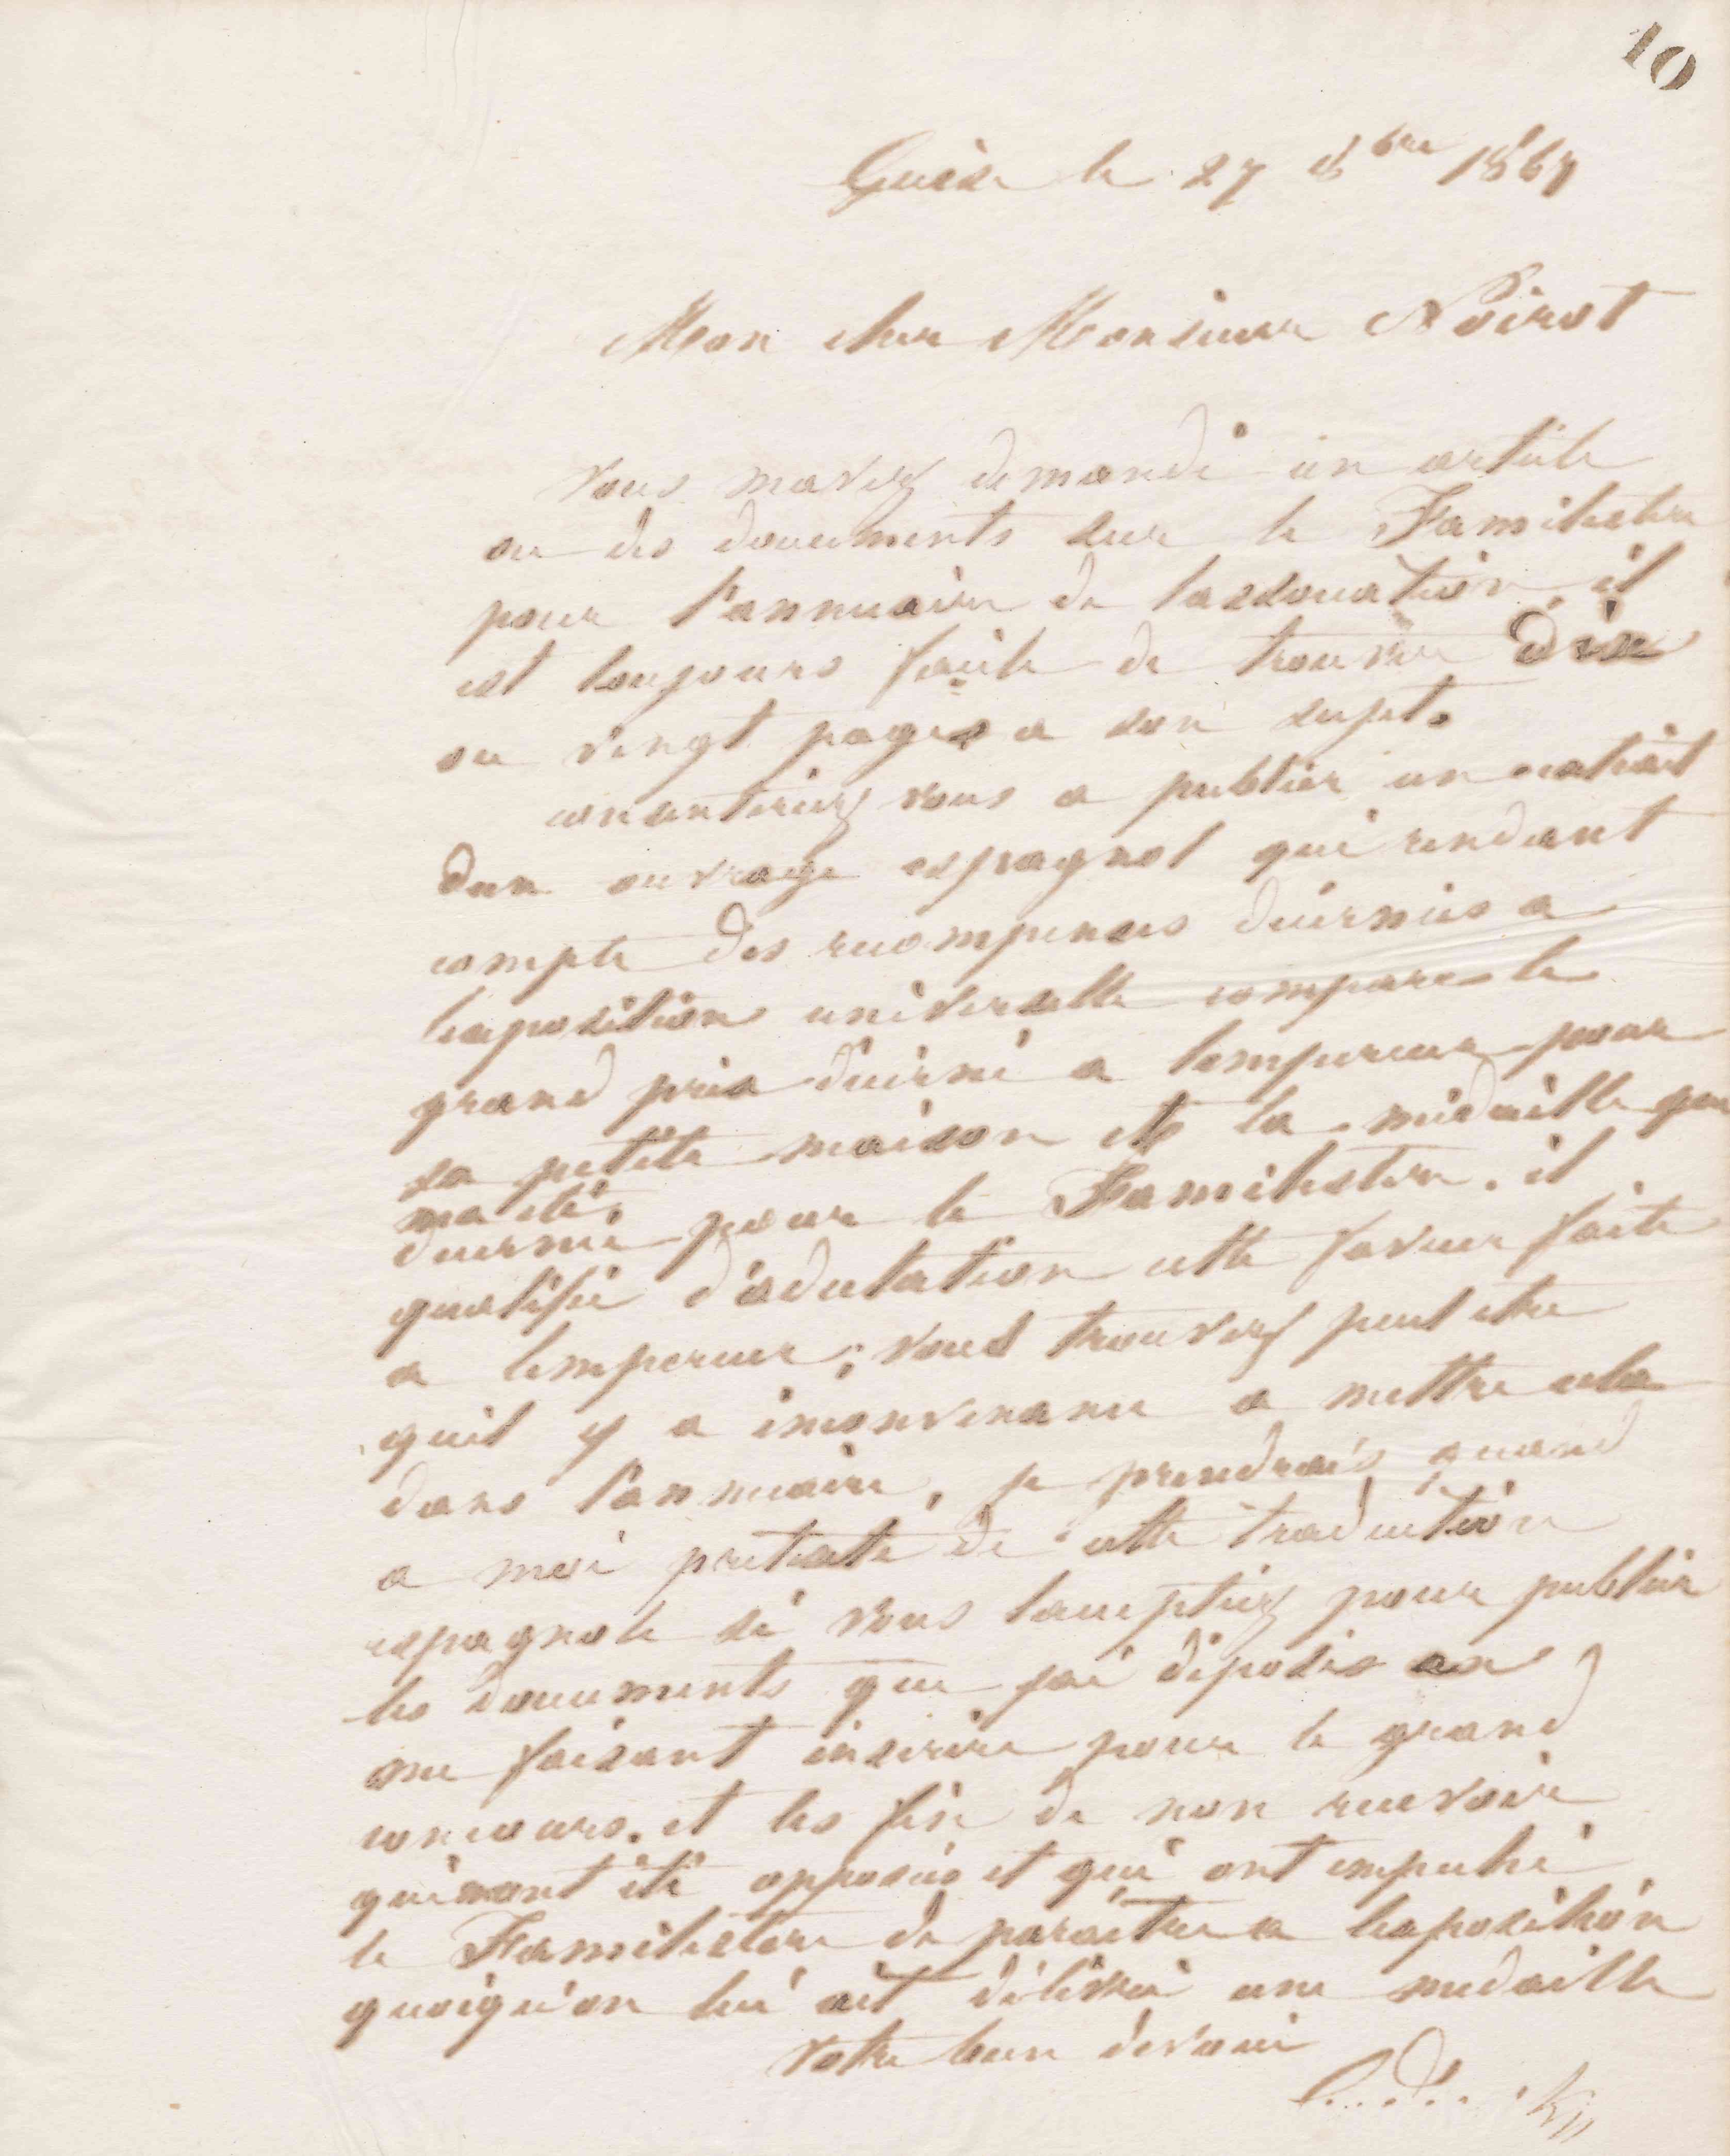 10
Guise le 27 8bre 1867
Mon cher Monsieur Noirot
Vous mavez demandé un article
ou des documents sur le Familistere
pour l'annuaire de lassociation, il
est toujours facile de trouver dix
ou vingt pages a son sujet.
consentiriez vous a publier un extrait
dun ouvrage espagnol qui rendant
compte des recompenses décernées a
lexposition universelle compare le
grand prix décerné a lempereur pour
sa petite maison et la médaille que
ma été
décernée pour le Familistere. il
qualifie d'adulation cette faveur faite
a lempereur ; vous trouvez peut etre
quil y a inconvenance a mettre cela
dans l'annuaire, je prendrais quand
a moi pretexte de cette traduction
espagnole si vous lacceptiez pour publier
les documents que jai déposés en
me faisant inscrire pour le grand
concours. et les fin de non recevoir
qui mont été opposées et qui ont empeché
le Familistere de paraître a lexposition
quoiqu'on lui ait délivré une medaille
Votre bien dévoué